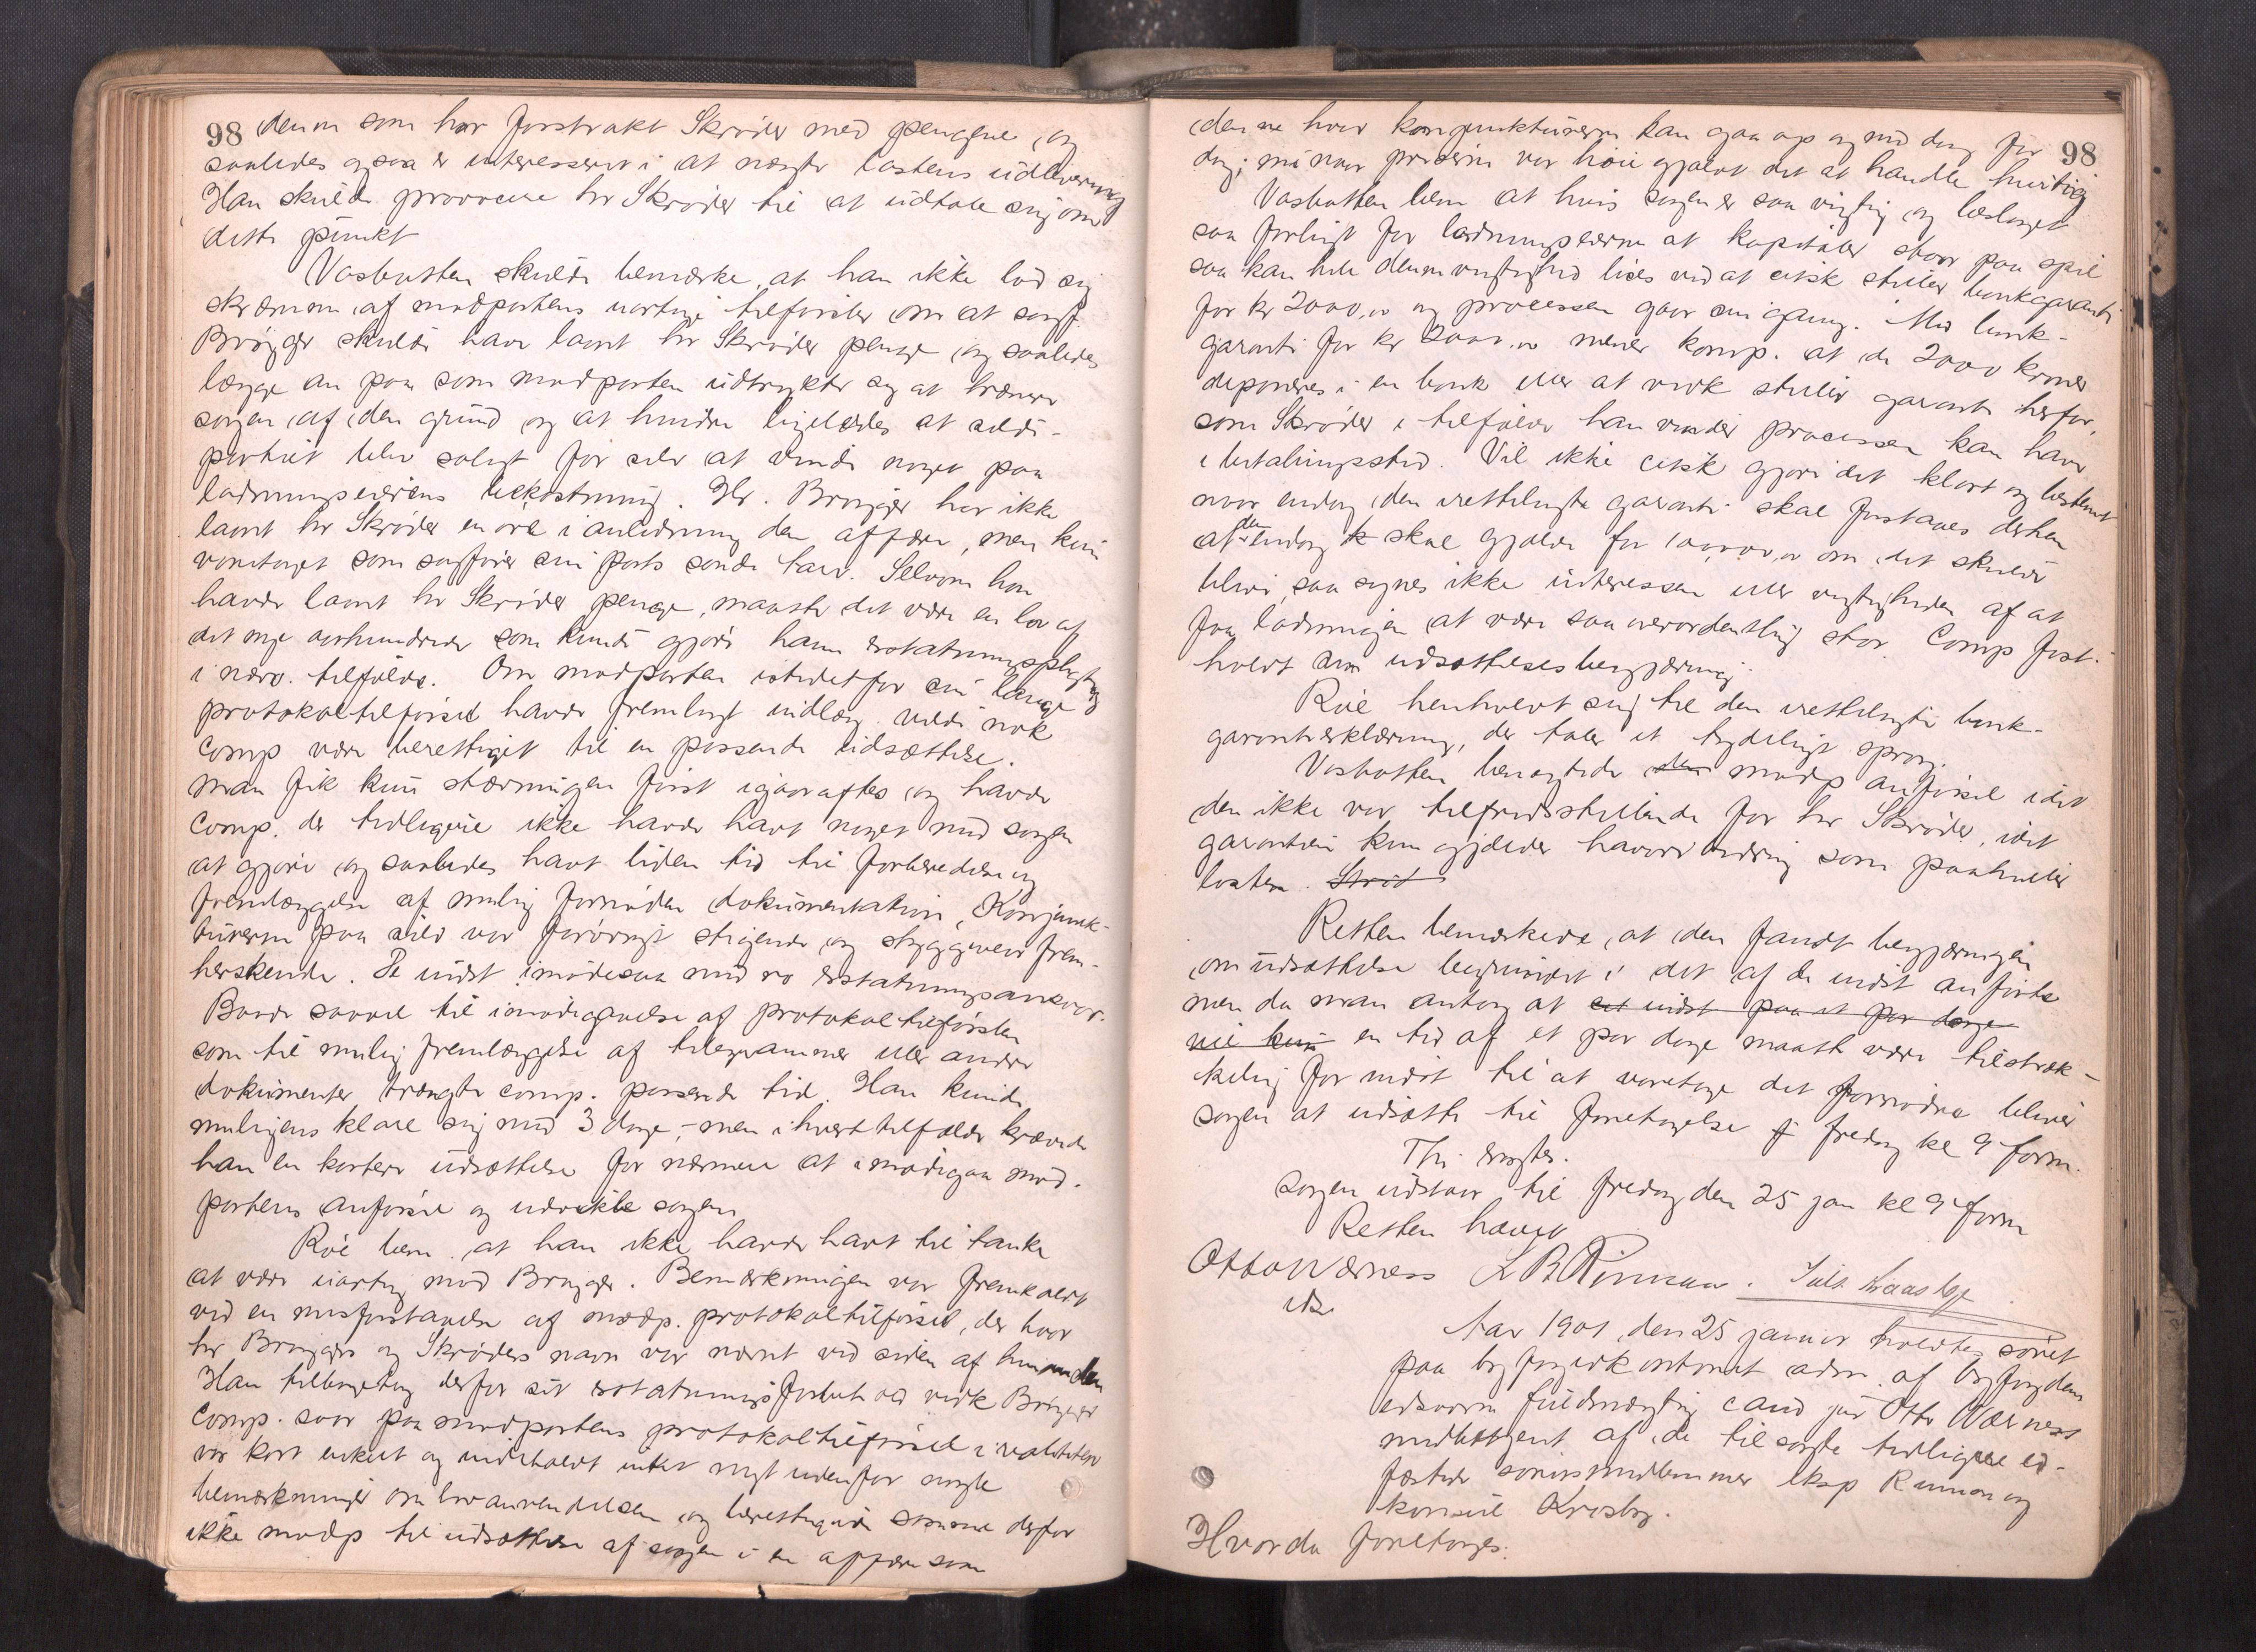 98 denne som har forstrakt Skrøder med pengene, og
saaledes ogsaa er interesseret i at nægte lastens udlevering
Han skulde provocere hr Skrøder til at udtale sig om
dette punkt
Vasbotten skulde bemærke, at han ikke lod sig
skræmme af modpartens uartige tilførsler om at sagf.
Brügger skulde have laant hr Skrøder penge og saaledes
lægge an paa som modparten udtrykte sig at trænere
sagen af den grund og at hindre ligeledes at silde-
partiet blev solgt for selv at vinde noget paa
ladningseierens bekostning. Hr. Brügger har ikke
laant hr Skrøder en øre i anledning den affære, men kun
varetaget som sagfører sin parts sande tarv. Selvom han
havde laant hr Skrøder penge, maatte det være en lov af
det nye aarhundrede som kunde gjøre ham erstatningspligtig
i nærv. tilfælde. Om modparten istedetfor sin lange
protokoltilførsel havde fremlagt indlæg vilde nok
Comp være berettiget til en passende udsættelse.
man fik kun stævningen først igaaraftes og havde
Comp. der tidligere ikke havde havt noget med sagen
at gjøre og saaledes havt liden tid til forberedelse og
fremlæggelse af mulig fornøden dokumentation, Konjunk-
turerne paa sild var forøvrigt stigende og styggeveir frem-
herskende. De indst. imødesaa med ro erstatningsansvar.
Baade saavel til imødegaaelse af protokoltilførslen
som til mulig fremlæggelse af telegrammer eller andre
dokumenter trængte comp. passende tid. Han kunde
muligens klare sig med 3 dage, - men i hvert tilfælde krævede
han en kortere udsættelse for nærmere at imødegaa mod-
partens anførsel og udvikle sagen
Roe bem. at han ikke havde havt til tanke
at være uartig mod Brügger. Bemærkningen var fremkaldt
ved en misforstaaelse af modp. protokoltilførsel, der hvor
hr Brüggers og Skrøders navn var nævnt ved siden af hinanden
Han tilbagetog derfor sit erstatningsforbehold vedk Brügger
Comp. svar paa modpartens protokoltilførsel i realiteten
var kort enkelt og indeholdt intet nyt udenfor nogle
bemærkninger om lovanvendelsen og berettigede savner derfor
ikke modp til udsættelse af sagen i en affære som
98
denne hvor konjunkturerne kan gaa op og ned dag for
dag; nu naar priserne var høie gjaldt det at handle hurtig
Vasbotten bem at hvis sagen er saa vigtig og beslaget
saa farligt for ladningseierne at kapitaler staar paa spil
saa kan hele denne vigtighed løses ved at citsk stiller bankgaranti
for kr 2000,00 og processen gaar sin gang. Med bank-
garanti for kr 2000,00 mener komp. at de 2000 kroner
deponeres i en bank eller at vedk stiller garanti herfor,
som Skrøder i tilfælde han vinder processen kan have
i betalingssted. Vil ikke citsk gjøre det klart og bestemt
naar endog den irettelagte garanti skal forstaaes derhen
at den endog skal gjælde for 100,000,00 om det skulde
blive, saa synes ikke interessen eller vigtigheden af at
faa ladningen at være saa overordentlig stor. Comp fast-
holdt sin udsættelsesbegjæring.
Roe henholdt sig til den irettelagte bank-
garantierklæring, der taler et tydeligt sprog.
Vasbotten benægtede modp anførsel idet
den ikke var tilfredsstillende for hr Skrøder, idet
garantien kun gjælder havari bidrag som paahviler
lasten.
Retten bemærkede, at den fandt begjæringen
om udsættelse begrundet i det af de indst anførte
men da man antog at et indst paa et par dage
vil kun en tid af et par dage maatte være tilstræk-
kelig for indst til at varetage det fornødne bliver
sagen at udsætte til foretagelse fredag kl 9 form.
Thi eragtes.
Sagen udstaar til fredag den 25 jan kl 9 form
Retten hævet
Otto Værness L B Rinnan.
Aar 1901, den 25 januar holdtes søret
paa byfogedkontoret adm. af byfogdens
edsvorne fuldmægtig cand jur Otto Værness
medbetjent af de tilsagte tidligere ed-
fæstede søretsmedlemmer eksp Rinnan og
konsul Krosby.
Hvorda foretoges: